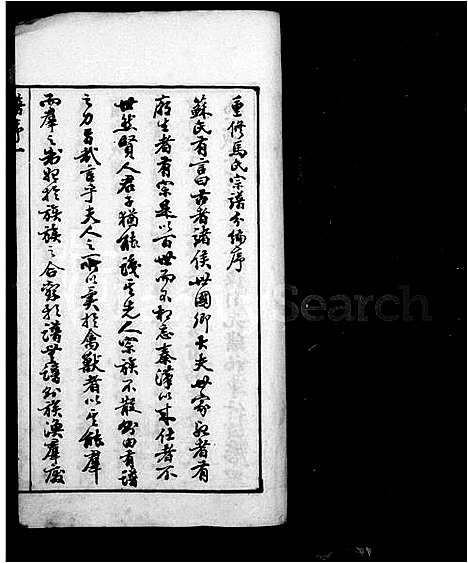 重修馬氏宗譜分編序
蘇氏有言曰古者諸侯世國卿大夫世家死者有
廟生者有宗是以百世而不相忘秦漢以來仕者不
世然賢人君子猶能識其先人宗族不散則由有譜
之力旨哉言乎夫人之所以異於禽獸者以其能群
而群之制始於族族之合寄於譜無譜則族渙群廢
譜序一
Search